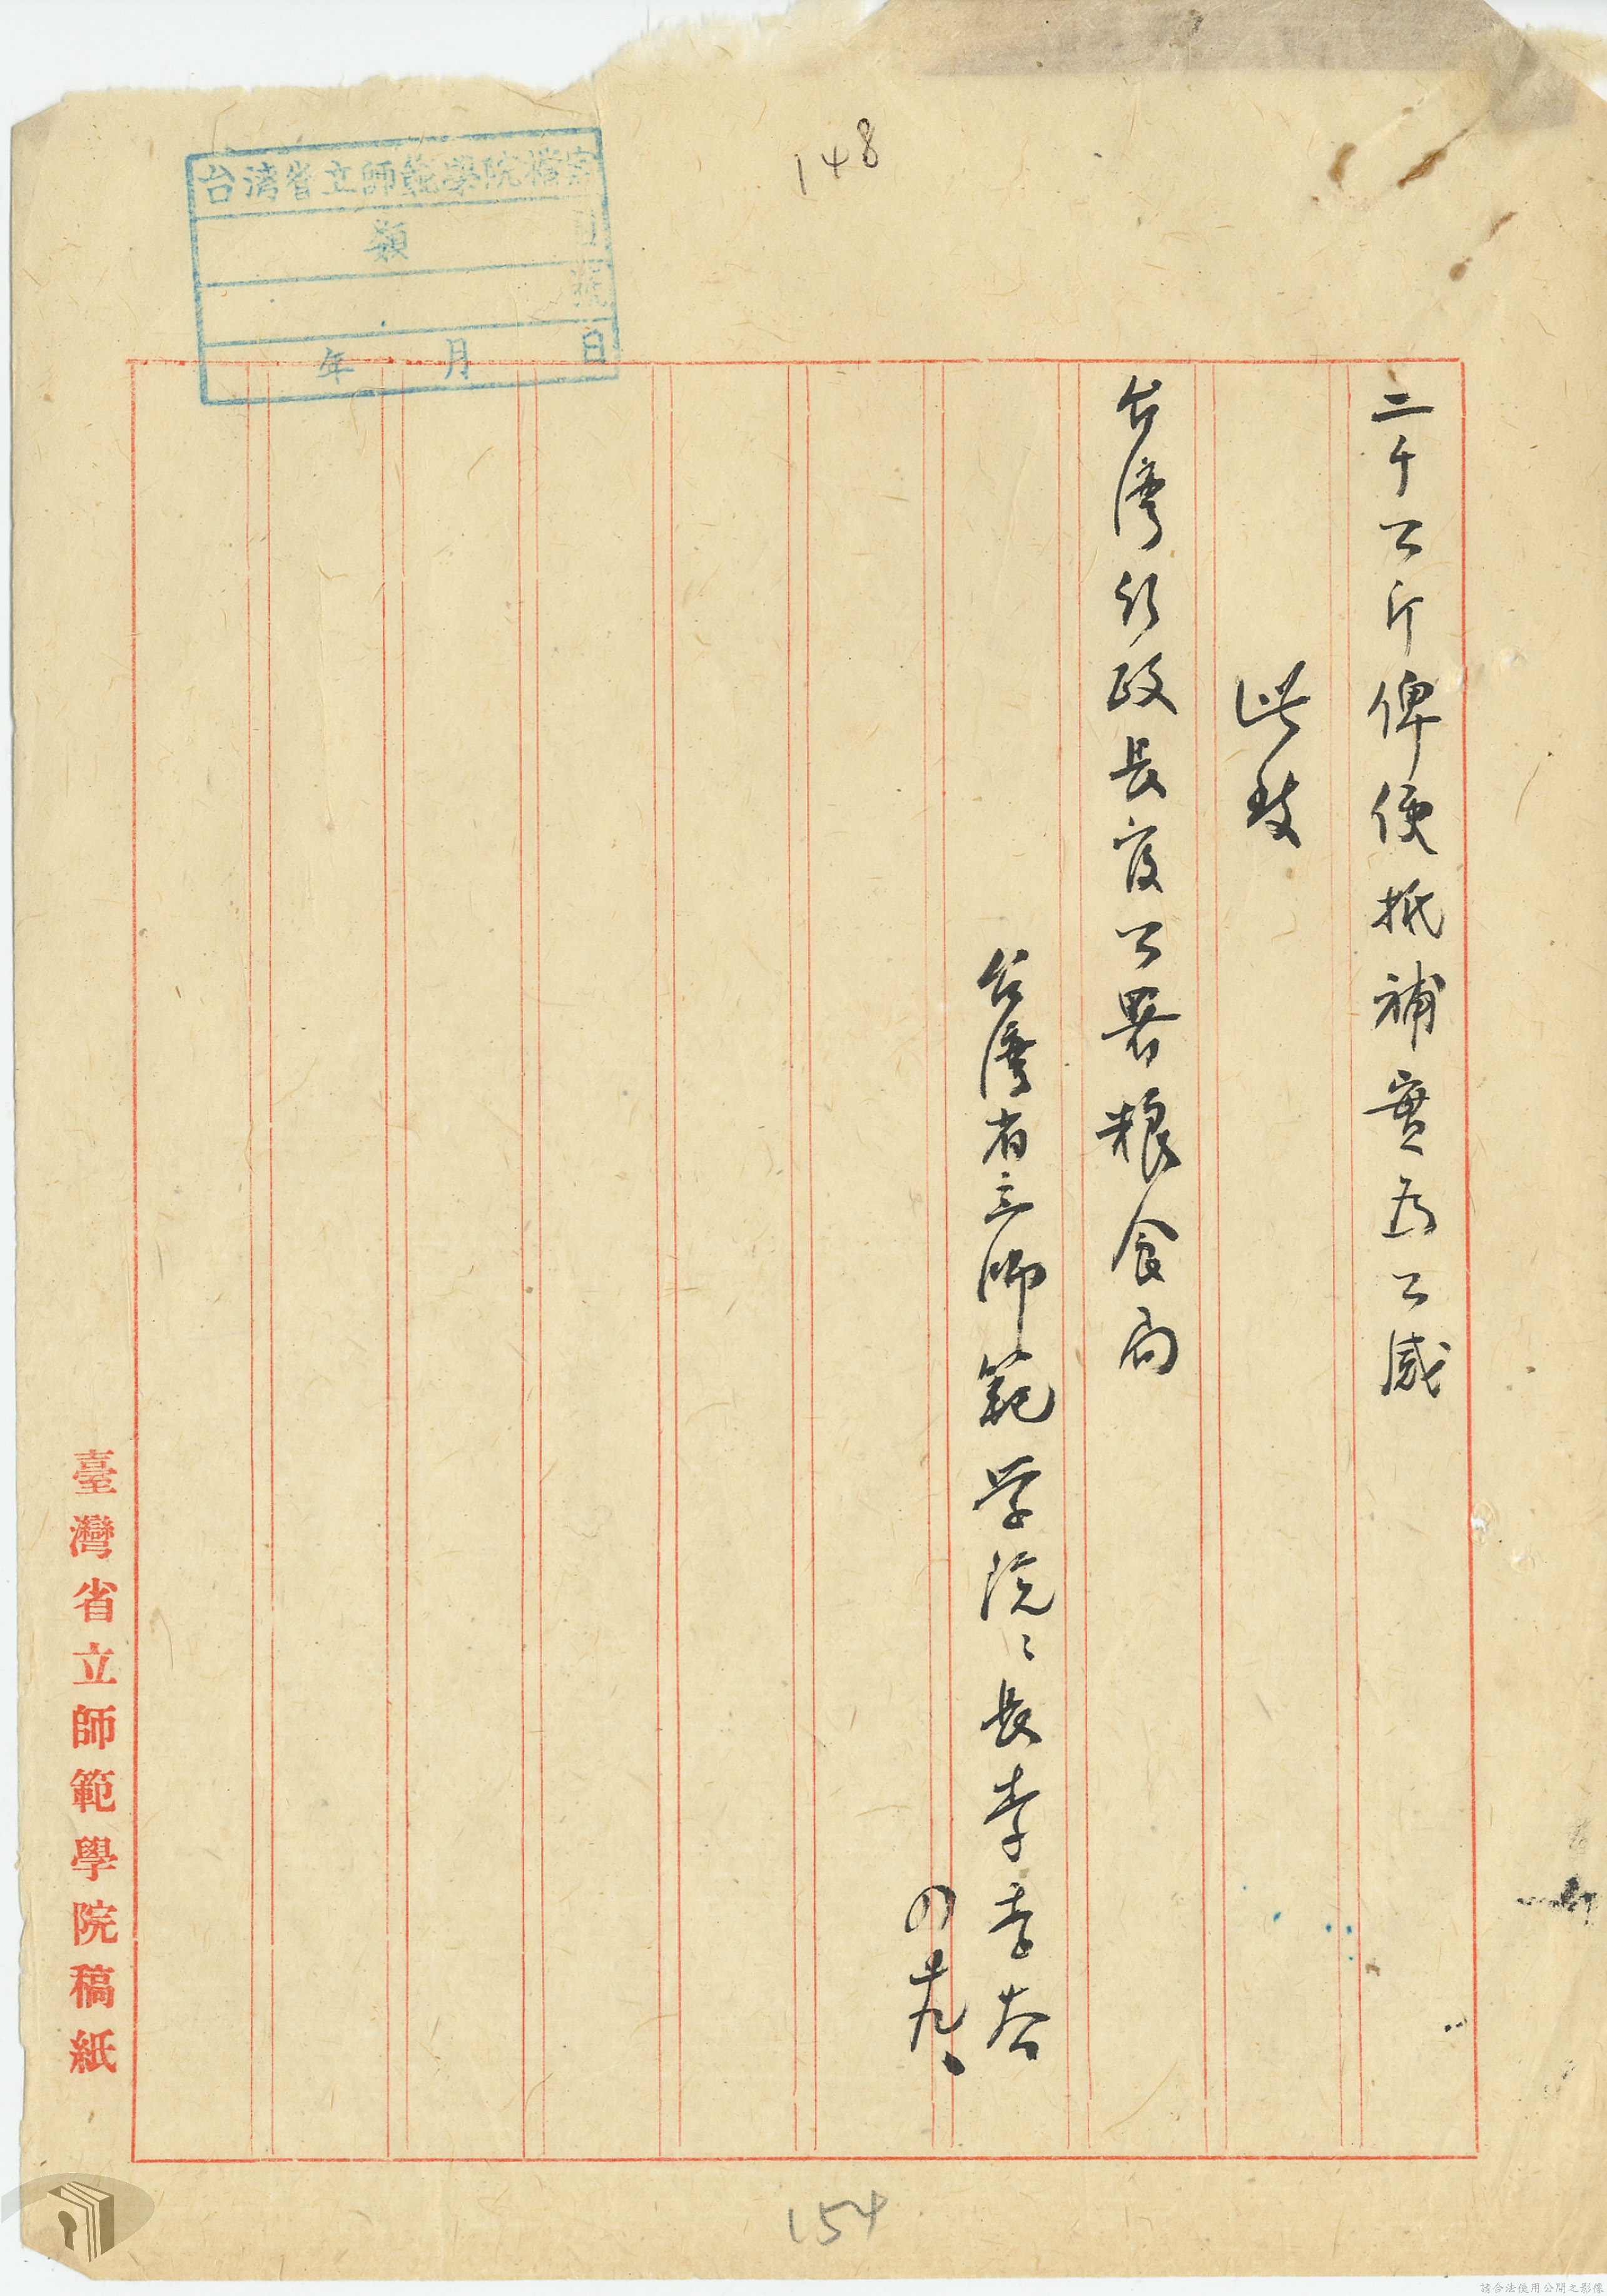 148
台湾省立師範學院檔案
類 目
號
年 月 日
二千公斤俾便抵補實为公感
此致
台灣行政長官公署粮食局
台灣省立師範学院〻長李季谷
四 十九
臺灣省立師範學院稿紙
154
請合法使用公開之影像